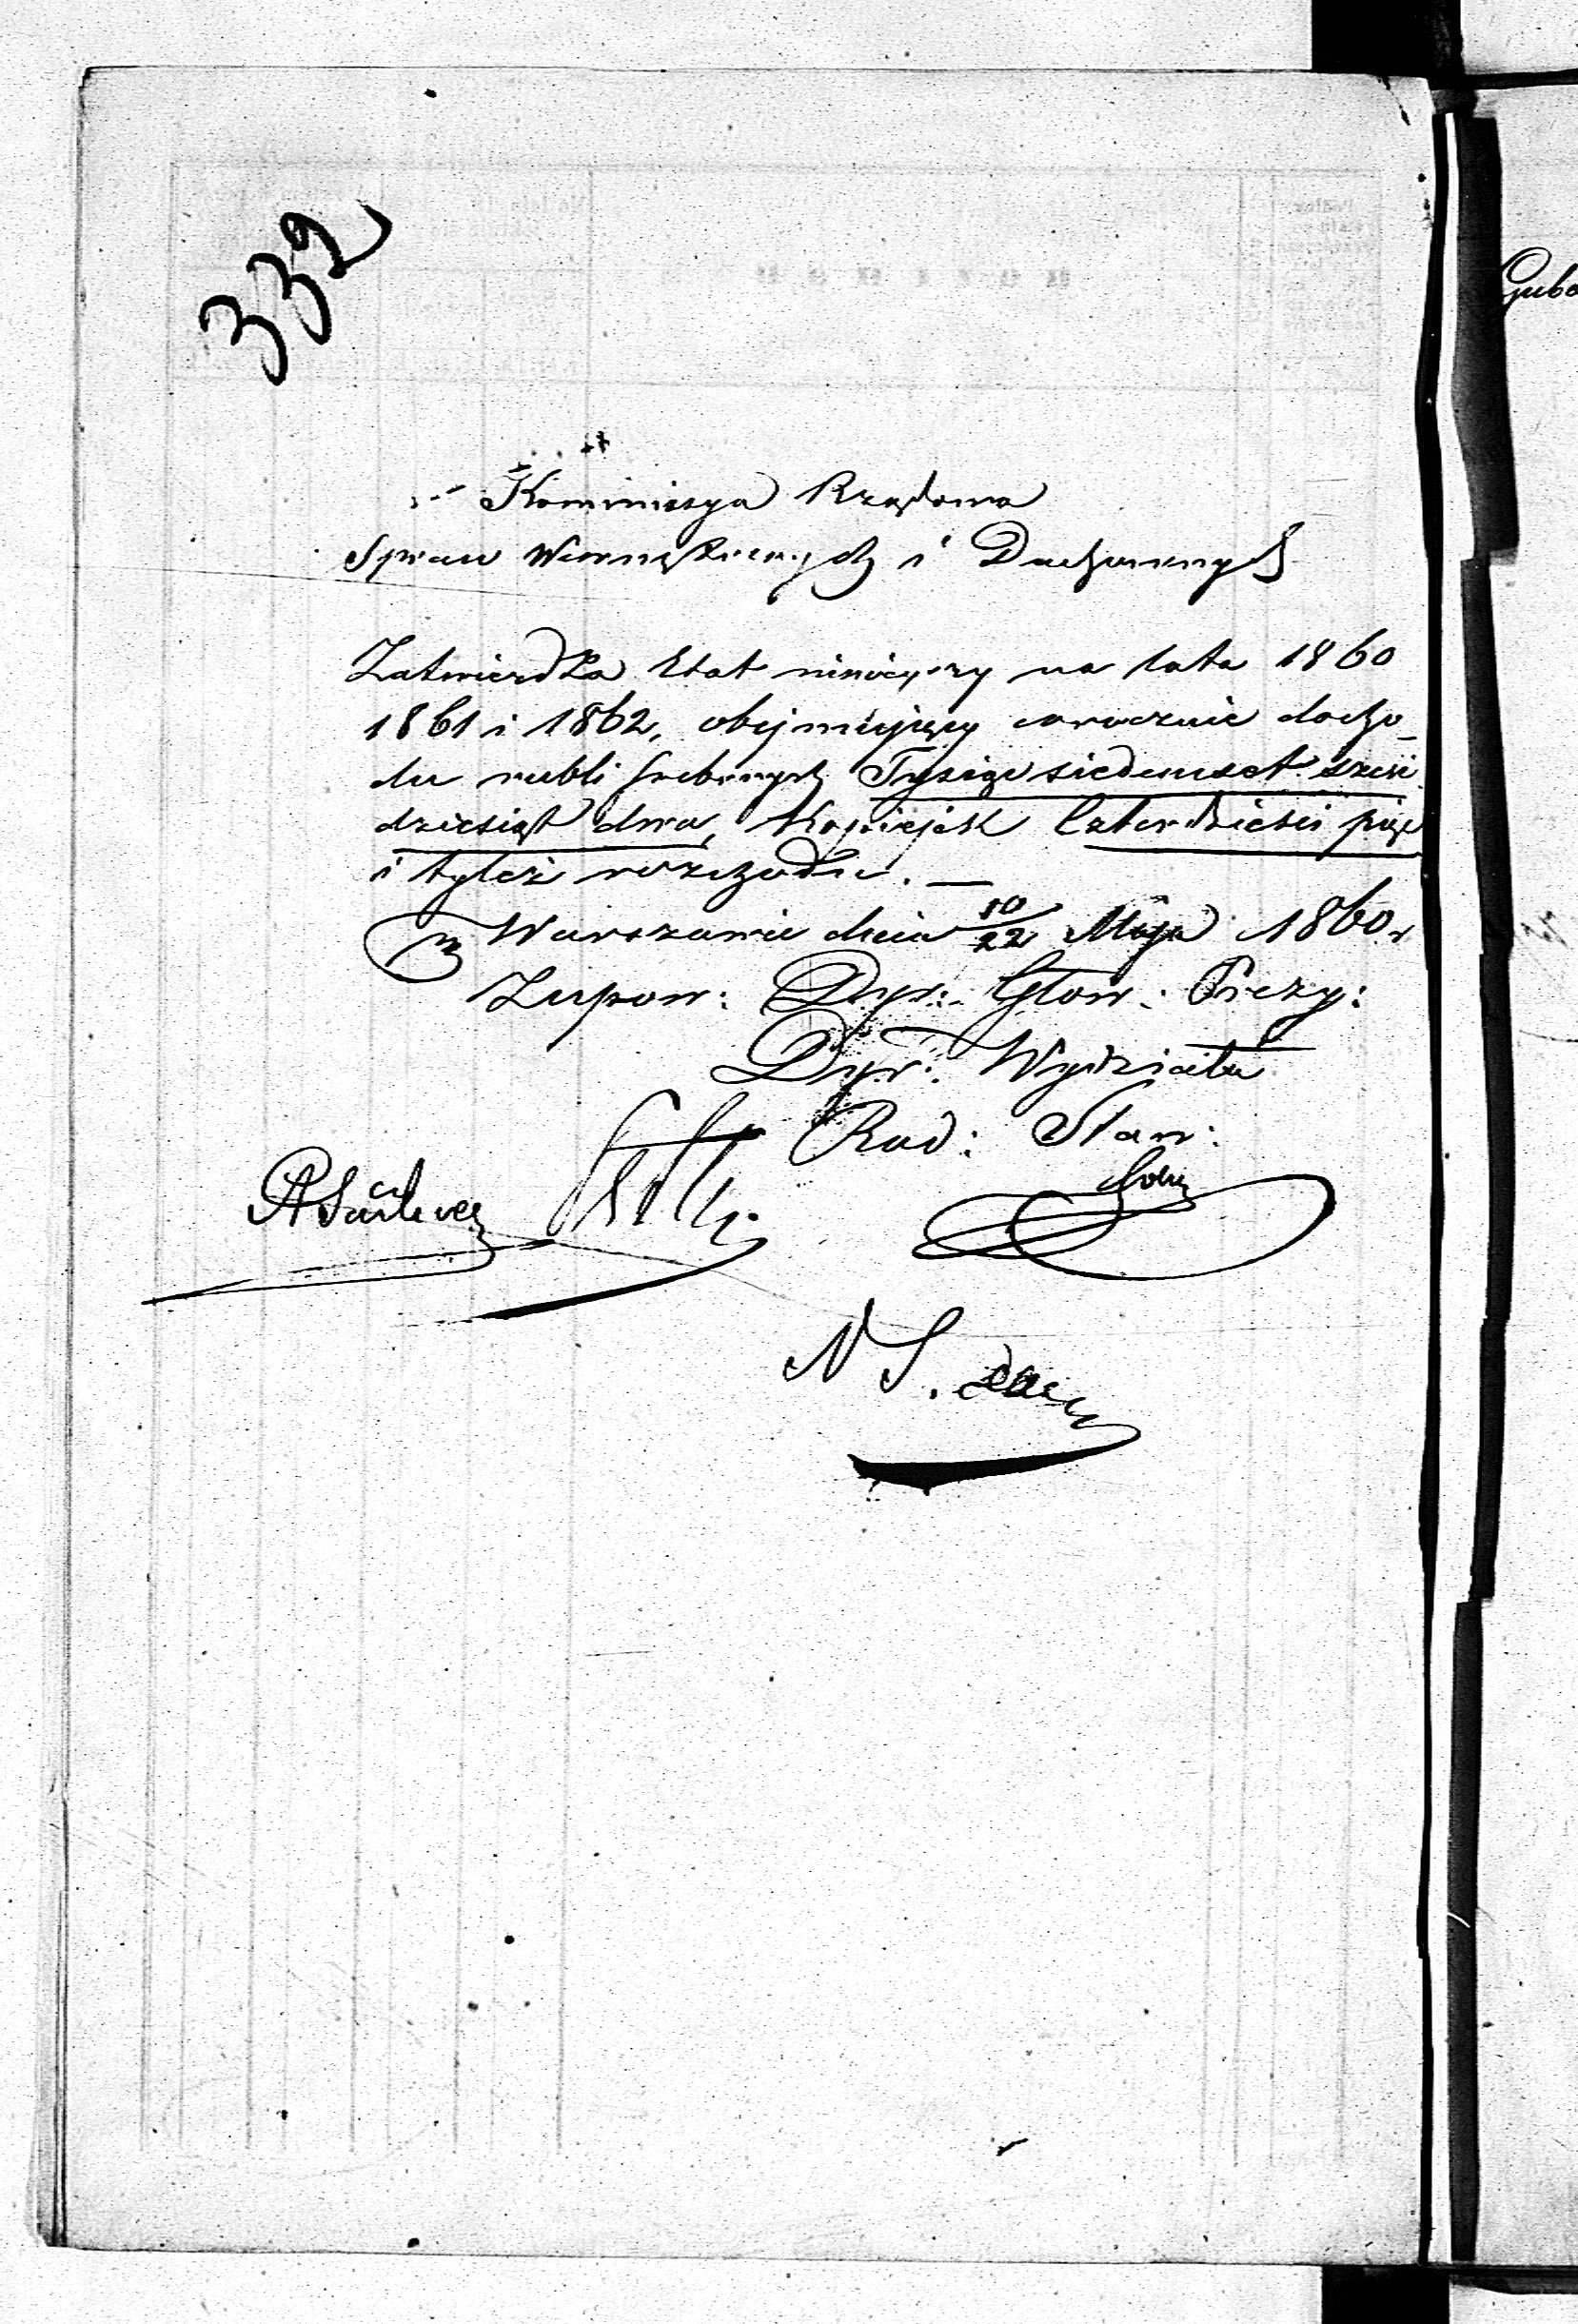 332
Kommissya Rządowa
Spraw Wewnętrznych i Duchownych
Zatwierdza Etat niniejszy na lata 1860
1861 i 1862, obejmujący corocznie docho_
du rubli srebrnych Tysiąc siedemset sześć
dziesiąt dwa, Kopiejek Czterdzieści pięć
i tyleż rozchodu. —
w Warszawie dnia 10/22 Maja 1860 r
Z upow: Dyr: Głow: Prezy:
Dyr: Wydziału
Rad: Stan:
N S.
Gube